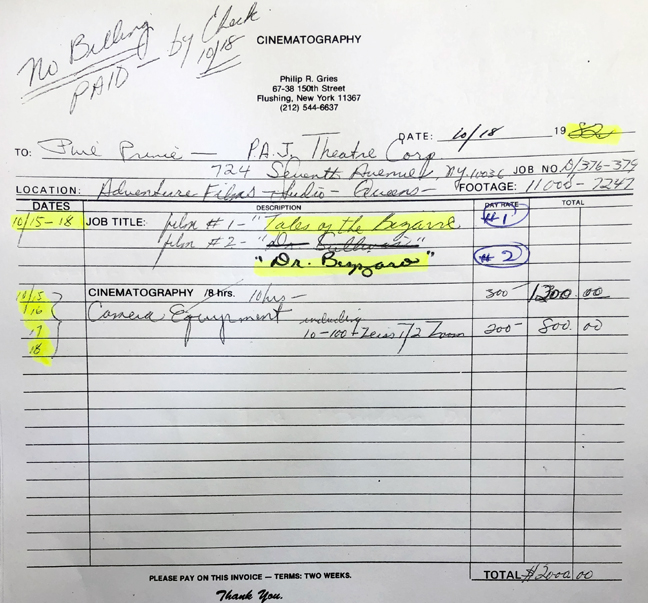 No Billing by Check
PAID 10/18
CINEMATOGRAPHY
Philip R. Gries
67-38 150th Street
Flushing, New York 11367
(212) 544-6637
DATE: 10/18 1982
TO: Phil Prince — P.A.J. Theatre Corp
724 Seventh Avenue, N.Y. 10036 JOB NO. D/376-379
LOCATION: Adventure Films Studio - Queens - FOOTAGE: 11000 - 7247
DATES DESCRIPTION DAY RATE TOTAL
10/15-18 JOB TITLE: film #1 - "Tales of the Bizarre #1
film #2 - "Dr.
"Dr. Bizzaro" #2
10/15 CINEMATOGRAPHY /8 hrs. 10 hrs - 300- 1200.00
16 Camera Equipment including
17 10-100 Zeiss T/2 Zoom 200- 800.00
18
TOTAL $2000.00
PLEASE PAY ON THIS INVOICE — TERMS: TWO WEEKS.
Thank You.